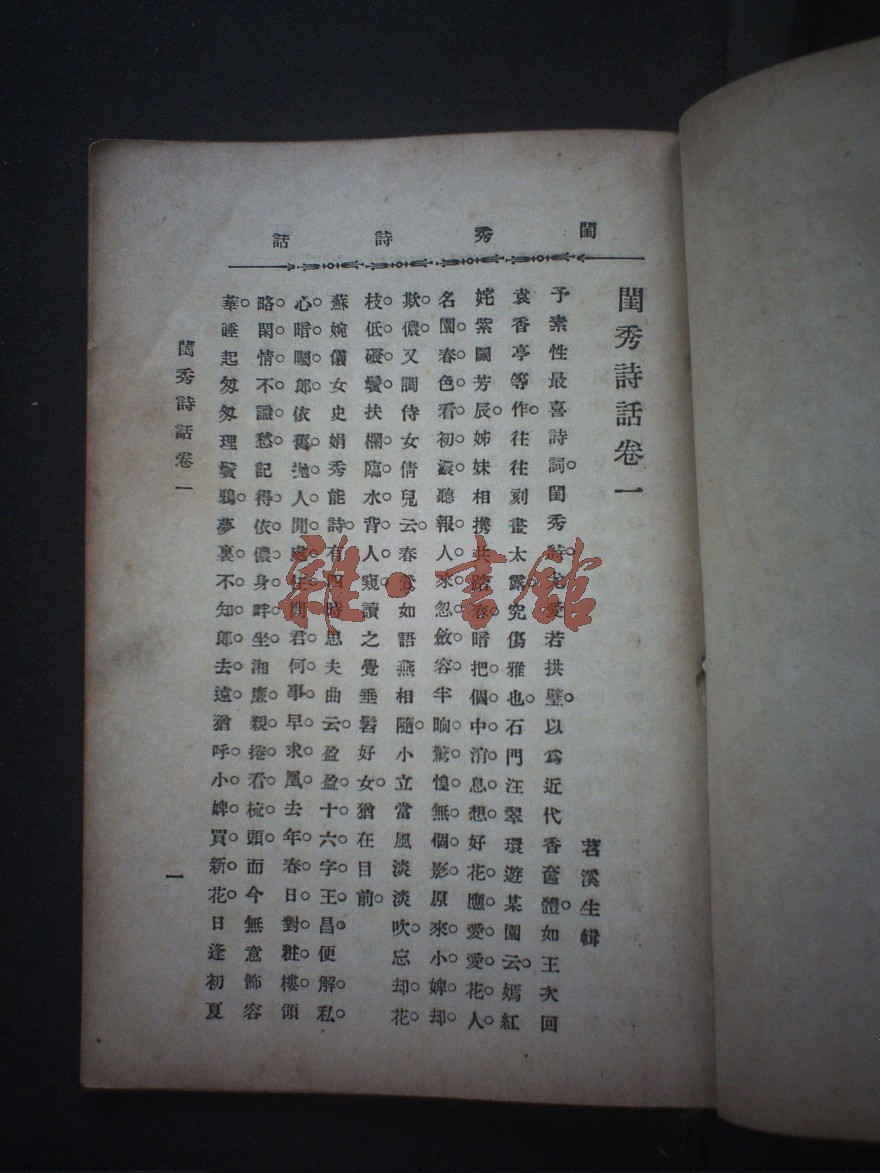 閨秀詩話
閨秀詩話卷一
苕溪生輯
予素性最喜詩詞。閨秀詩。尤愛若拱璧。以爲近代香奩體。如王次回
袁香亭等作。往往刻畫太露。究傷雅也。石門汪翠環遊某園云。嫣紅
姹紫鬭芳辰。姊妹相攜共踏春。暗把個中消息想。好花應愛愛花人。
名園春色看初濃。聽報人來忽斂容。半晌驚惶無個影。原來小婢却
欺儂。又調侍女倩兒云。春鶯如語燕相隨。小立當風淡淡吹。忘却花
枝低礙鬢。扶欄臨水背人窺。讀之覺垂髫好女。猶在目前。
蘇婉儀女史娟秀能詩。有四時思夫曲云。盈盈十六字王昌。便解私
心暗囑郎。依舊拋人閒處住。問君何事早求凰。去年春日對粧樓。領
略閑情不識愁。記得依儂身畔坐。湘簾親捲看梳頭。而今無意飾容
華。睡起匆匆理鬢鴉。夢裏不知郎去遠。猶呼小婢買新花。日逢初夏
閨秀詩話卷一
一
雜·書館